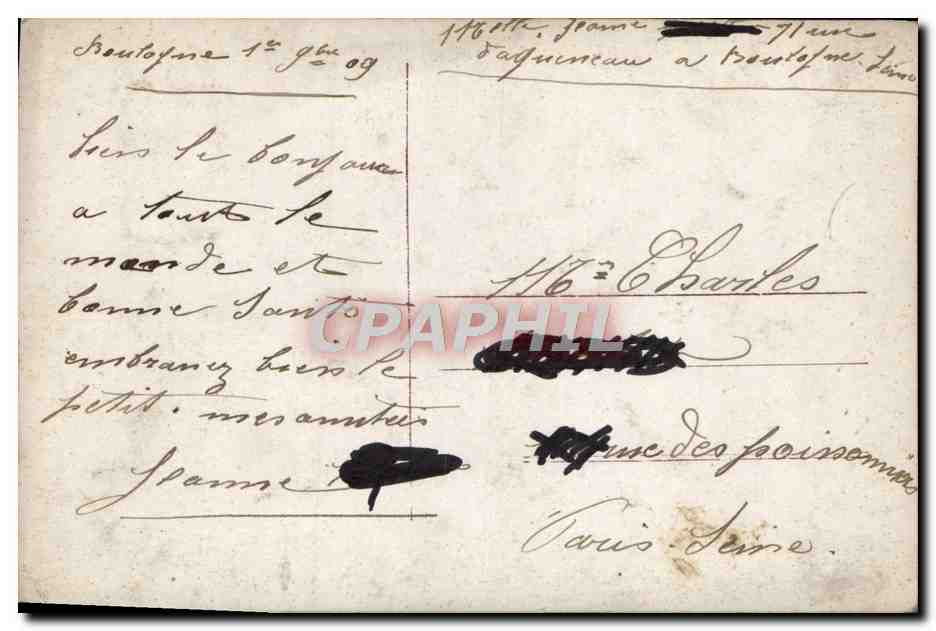 Boulogne 1er 9bre 09
Melle Jeanne 71 rue
d'aguesseau a Boulogne. Seine
bien le bonjour
a tout le
monde et
bonne Santé
embrassez bien le
petit. mes amitiés
Jeanne
Mr Charles
rue des poissonniers
Paris. Seine.
CPAPHIL